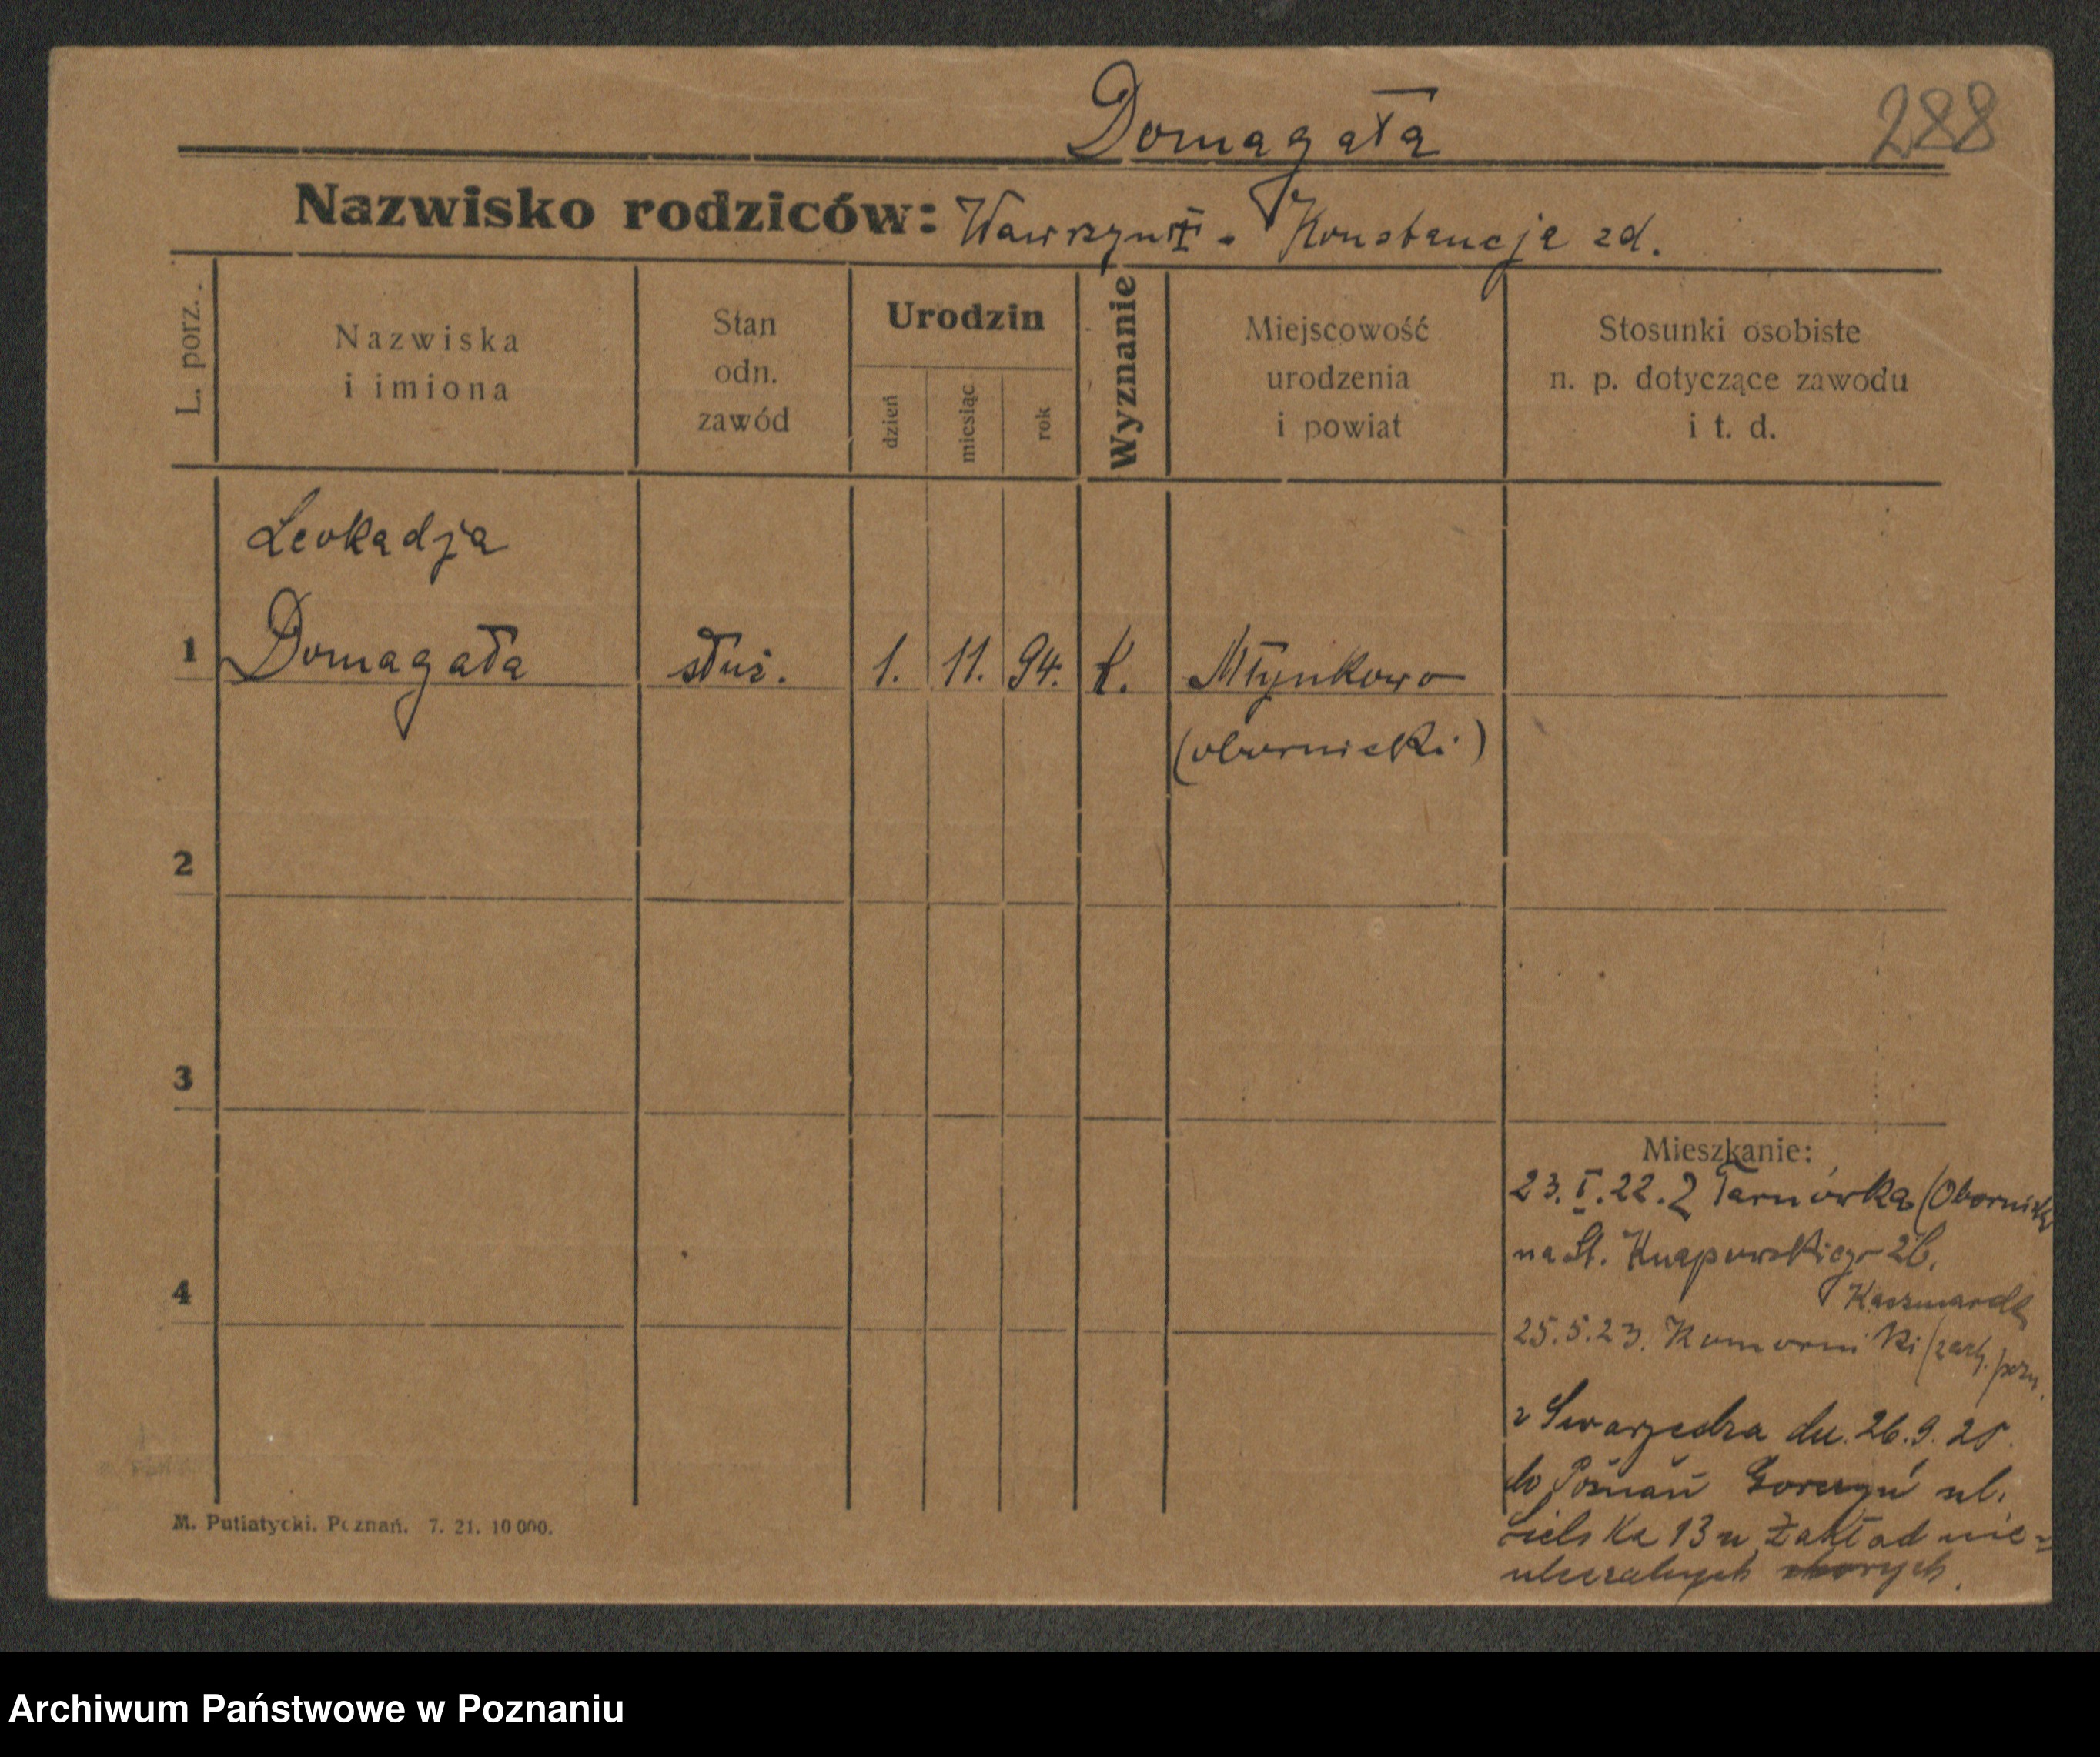 Domagała
288
Nazwisko rodziców: Wawrzyn - Konstancja zd.
L. porz.
Nazwiska
i imiona
Stan
odn.
zawód
Urodzin
dzień
miesiąc
rok
Wyznanie
Miejscowość
urodzenia
i powiat
Stosunki osobiste
n. p. dotyczące zawodu
i t. d.
Leokadja
1 Domagała służ. 1. 11. 94. K. Młynkowo
(obornicki)
2
3
4
Mieszkanie:
23.I.22. Z Tarnówka (Obornicki
na St. Knapowskiego 26.
25.5.23. Komorniki (zach. pozn.
z Swarzędza dn. 26.9.25.
do Poznań Gorczyn ul.
Bielska 13 u Zakład nie=
uleczalnych chorych.
M. Putiatycki. Poznań. 7. 21. 10 000.
Archiwum Państwowe w Poznaniu